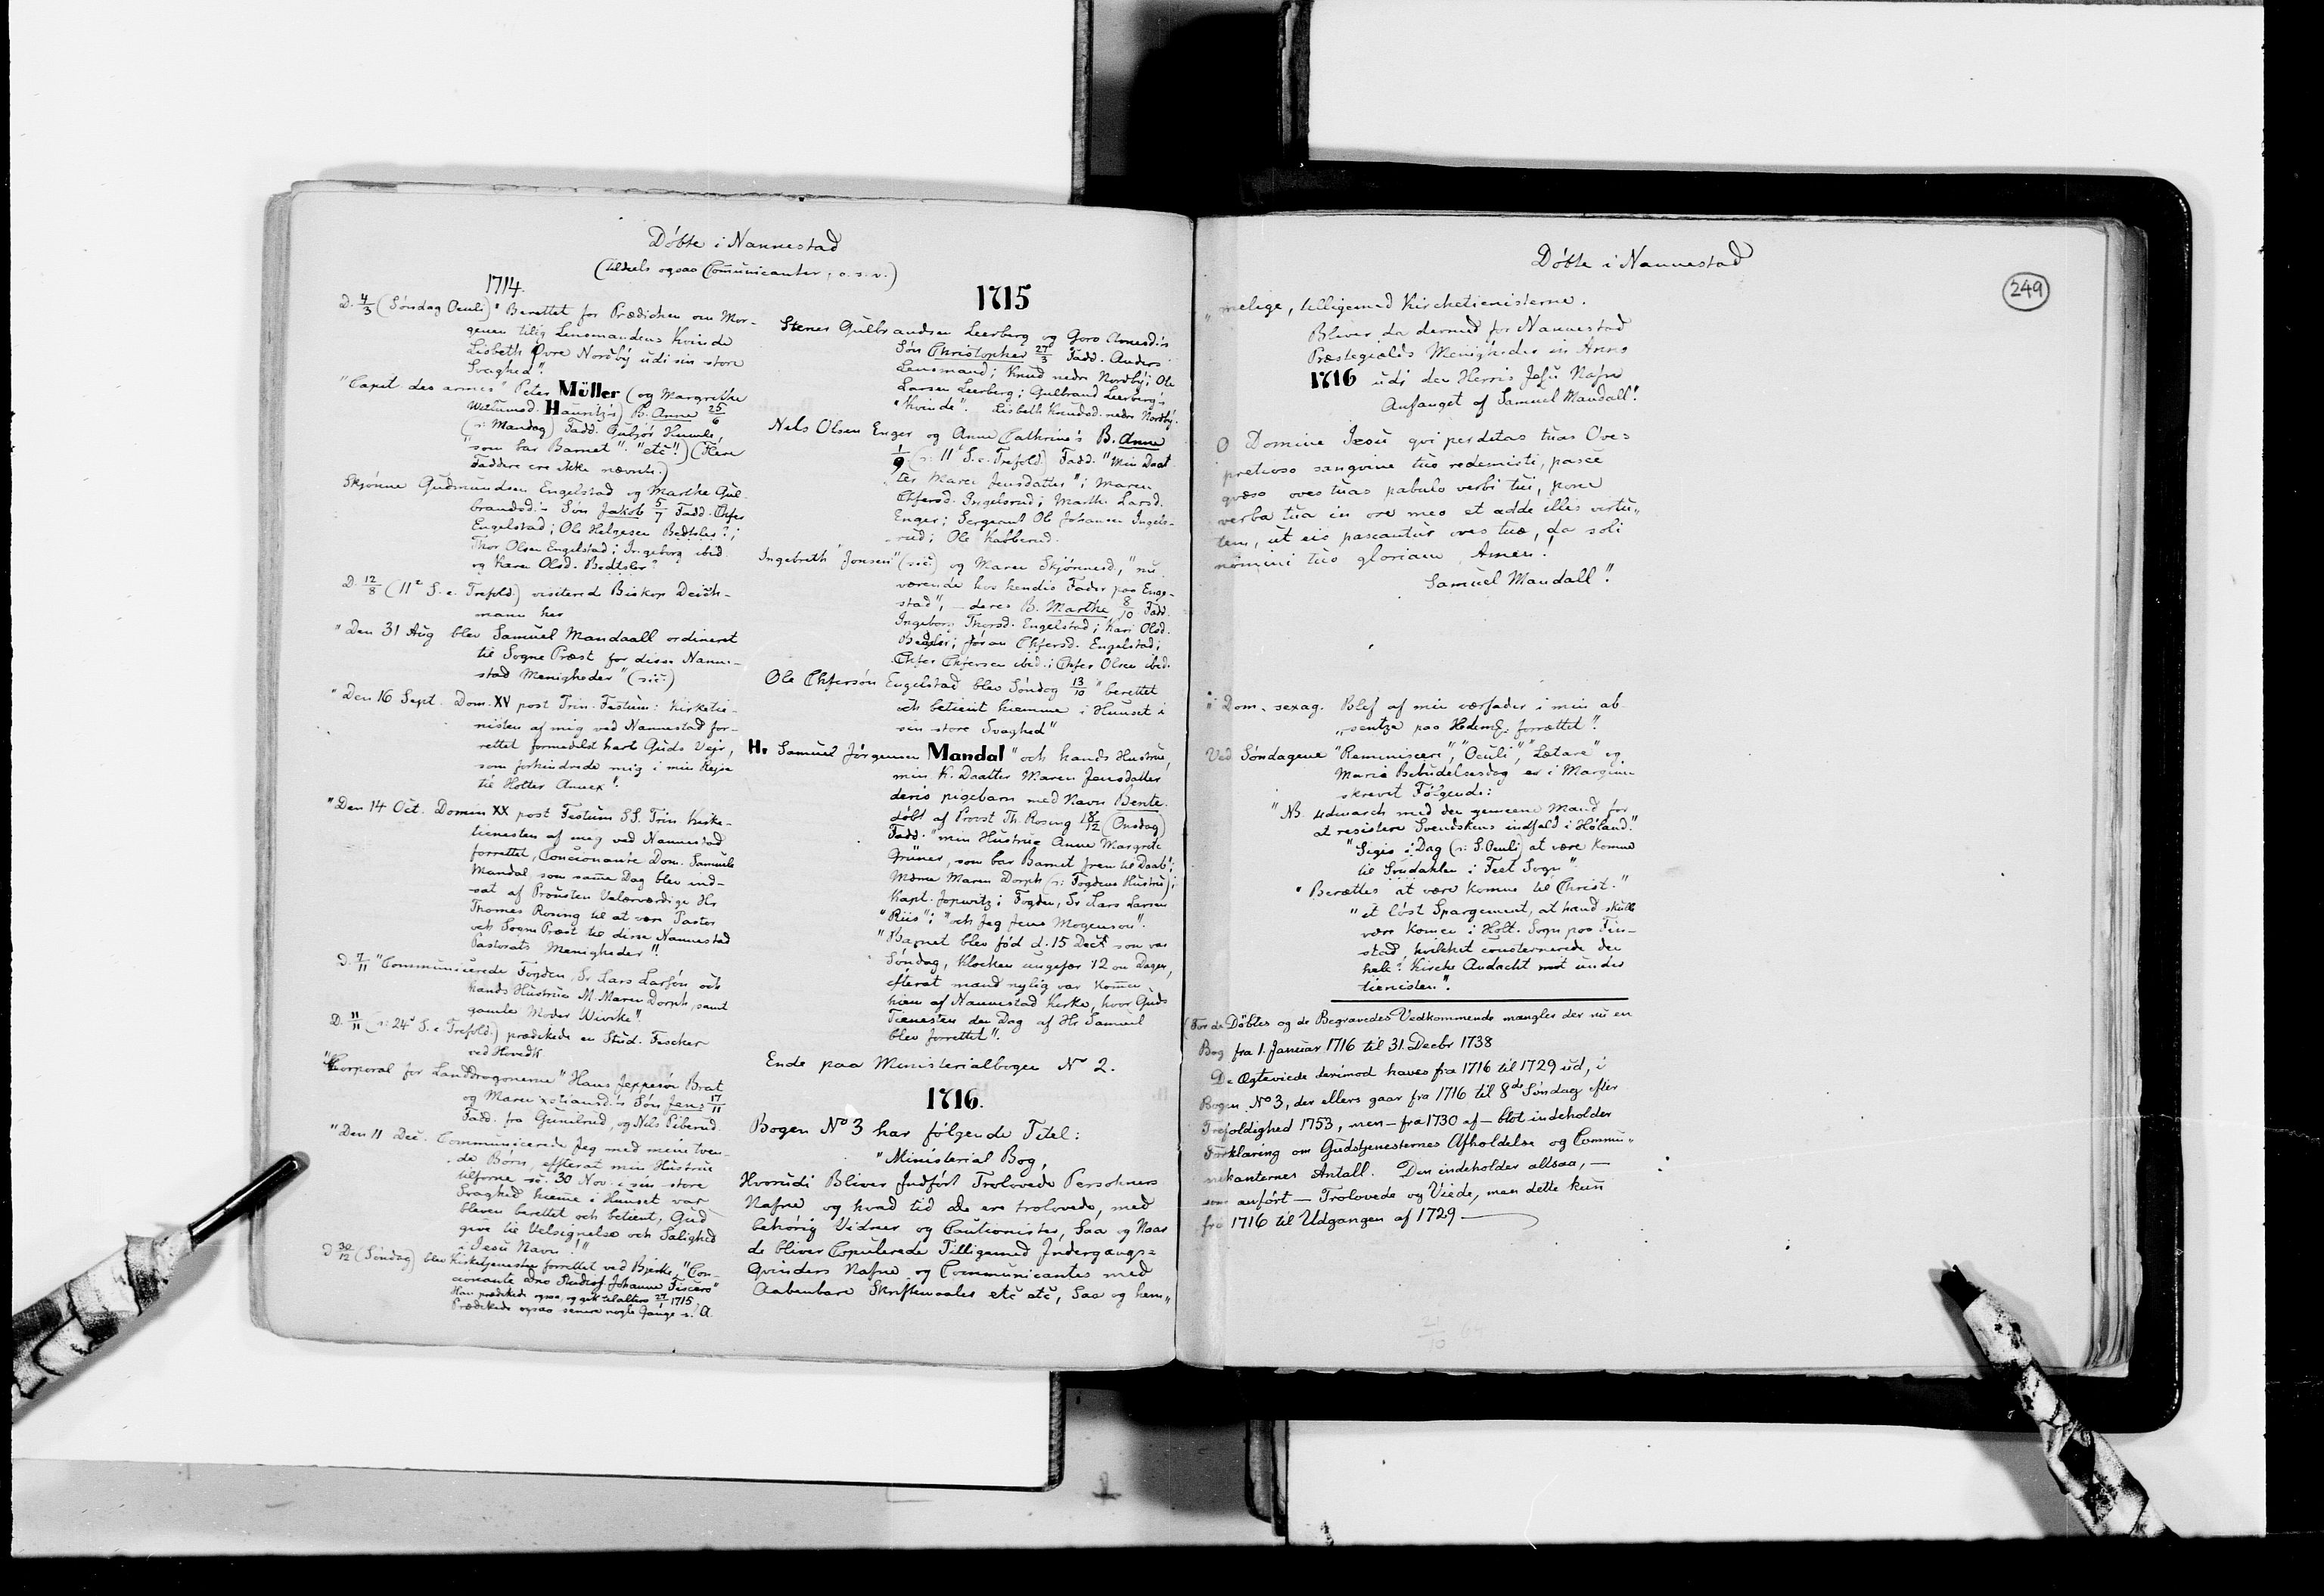 Döbte i Nannestad
(tildels ogsaa Com̃unicanter, o.s.v.)
1714.
D. 4/3 (Söndag Oculi) "Berettet for Prædicken om Mor-
genen tilig Lensmandens Kvinde
Lisbeth Øvre Nordbÿ udi sin store
Svaghed".
"Capit. des armes" Peter Müller (og Margrethe
Hauritz's) B. Anne 25/6
(ɔ: Mandag) Fadd. Gubjör Humle,
"som bar Barnet". "etc"!) (Flere
Faddere ere ikke nævnte.)
Skjönne Gudmundsen Engelstad og Marthe Gul-
brandsd.s Sön Jakob 5/7 Fadd. Chfer
Engelstad; Ole Helgesen Bedtsler?;
Thor Olsen Engelstad; Ingeborg ibid.
og Karen Olsd. Bedtsler?
D. 12/8 (11te S. e. Trefold.) visiterede Biskop Deich-
mann her
"Den 31 Aug blev Samuel Mandaall ordineret
til Sogne Præst for disse Nanne-
stad Menigheder" (sic.)
"Den 16 Sept. Dom. XV post Trin. Festum: Kirketie-
nisten af mig ved Nannestad for-
rettet formedelst hart Guds Vejr,
som forhindrede mig i min Rejse
til Holter Annex".
"Den 14 Oct. Domin XX post Festum SS. Trin Kirke-
tienesten af mig ved Nannestad
forrettet, Concionante Dom. Samuele
Mandal som sam̃e Dag blev ind-
sat af Prousten Velærværdige Hr
Thomes Rosing til at være Pastor
och Sogne Præst til disse Nannestad
Pastorats Menigheder".
D. 7/11 "Communicerede Fogden, Sr. Lars Larsön och
hands Hustrue M. Maren Dorph, samt
gamle Moder Wivike".
D. 11/11 (ɔ: 24de S. e. Trefold.) prædikede en Stud. Fischer
ved Hovedk.
"Corporal for Landdragonerne" Hans Jeppesön Brat
og Maren Xstiansd.s Sön Jens 17/11
Fadd. fra Gunilrud, og Nils Piberud.
"Den 11 Dec. Communicerede Jeg med mine tven-
de Börn, effterat min Hustrue
tilforne d. 30 Nov. i sin store
Svaghed hiemme i Huuset var
bleven berettet och betient, Gud
give til Velsignelse och Salighed
i Jesu Navn!"
D. 30/12 (Söndag) blev Kirketjenesten forrettet ved Bjerke, "Con-
cionante Dno Studios. Johanne Fischero"
Han prædikede ogsaa, og gik til alters 27/1 1715,
Prædikede ogsaa senere nogle Gange s. A.
1715
Stener Gulbrandsen Leerberg og Goro Arnesd.s
Sön Christopher 27/3 Fadd. Anders
Lensmand; Knud nedre Nordbÿ; Ole
Larsen Leerberg; Gulbrand Leerberg's
"Kvinde". Lisbeth Knudsd. nedre Nordbÿ.
Nels Olsen Enger og Anne Cathrine's B. Anne
1/9 (ɔ: 11te S. e. Trefold.) Fadd. "Min Daat-
ter Maren Jensdatter"; Maren
Chfersd. Ingelsrud; Marth. Larsd.
Enger; Sergeant Ole Johansen Ingels-
rud; Ole Kabberud.
Ingebreth "Jonsen" (sic.) og Maren Skjönnesd, "nu
værende hos hendis Fader paa Enge-
stad", - deres B. Marthe 8/10 Fadd.
Ingeborg Thorsd. Engelstad; Kari Olsd.
Bedsler; Jöran Chfersd. Engelstad;
Chfer Chfersen ibid.; Chfer Olsen ibid.
Ole Chfersön Engelstad blev Söndag 13/10 "berettet
och betient hiemme i Huuset i
sin store Svaghed"
Hr Samuel Jörgensen Mandal "och hands Hustrue,
min K. Daatter Maren Jensdatter
deris pigebarn med Navn Bente.
döbt af Provst Th. Rosing 18/12 (Onsdag)
Fadd. "min Hustrue Anne Margrete
Grüner, som bar Barnet frem til Daab";
Mdme Maren Dorph (ɔ: Fogdens Hustru);
Kapt. Jopwitz; Fogden, Sr Lars Larsen
"Riis"; "och Jeg Jens Mogensön".
"Barnet blev föd d. 15 Dec. som var
Söndag, Klocken ungefær 12 om Dagen,
efterat mand nylig var kom̃en
hiem af Nannestad Kirke, hvor Guds
Tienesten den Dag af Hr Samuel
blev forrettet".
Ende paa Ministerialbogen No 2.
1716.
Bogen No 3 har fölgende Titel:
"Ministerial Bog,
Hvorudi Bliver Indfört Trolovede Persohners
Nafne og hvad tid de ere trolovede, med
behörig Vidner og Cautionister, Saa og Naar
de bliver Copulerede Tilligemed Indergangs=
Qvinders Nafne og Communicantes med
Aabenbare Skriftemaales etc etc, Saa og hem„
Döbte i Nannestad
249
„melige, tilligemed Kirchetienisterne.
Bliver da dermed for Nannestad
Præstegields Menigheder in Anno
1716 udi den Herris Jesu Nafn
Anfanget af Samuel Mandall".
O Domine Iesu qvi perditas tuas Oves
pretioso sangvine tuo redemisti, pasce
qvæso oves tuas pabulo verbi tui, pone
verba tua in ore meo et adde illis virtu„
tem, ut eis pascantur oves tuæ, da soli
nomini tuo gloriam Amen!
Samuel Mandall".
Dom. sexag. Blef af min værfader i min ab-
„sentze paa Hedem. forrættet".
Ved Söndagene "Reminiscere", "Oculi", "Lætare" og
Mariæ Bebudelsesdag er i Marginen
skrevet Fölgende:
"NB. udmarch med den gemeene Mand for
at resistere Svendskens indfald i Höland".
"Sigis i Dag (ɔ: S. Oculi) at være komne
til Srudahlen i Feet Sogn".
"Berættes at være komne til Christ."
"et löst Spargement, at hand skulle
være komen i Holt. Sogn paa Fin-
stad hvilchet consternerede den
hele Kirche Andacht under
tienisten".
(For de Döbtes og de Begravedes Vedkommende mangler der nu en
Bog fra 1. Januar 1716 til 31. Decbr 1738
De Ægteviede derimod haves fra 1716 til 1729 ud, i
Bogen No 3, der ellers gaar fra 1716 til 8de Söndag efter
Trefoldighed 1753, men - fra 1730 af - blot indeholder
Forklaring om Gudstjenesternes Afholdelse og Commu„
nikanternes Antall. Den indeholder altsaa, -
som anfört - Trolovede og Viede, men dette kun
fra 1716 til Udgangen af 1729
21/10 64